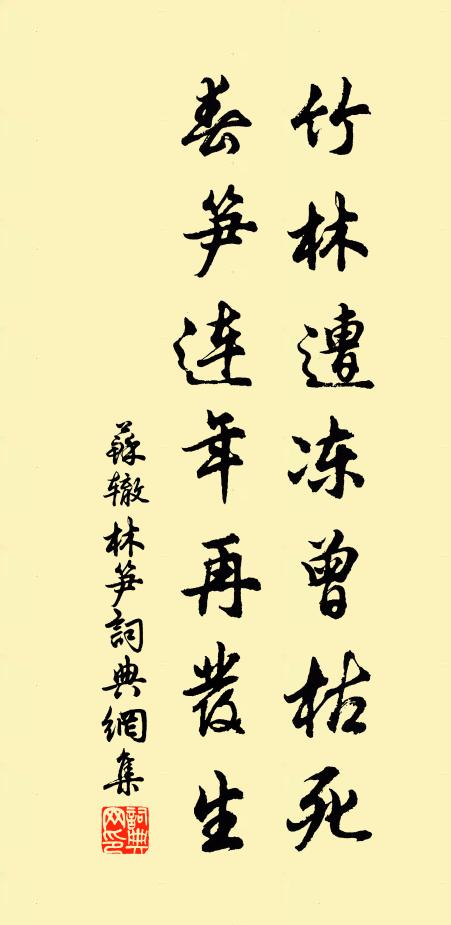 竹林遭冻曾枯死
春笋连年再發生
蘇辙林笋詞典網集
詞典
网印